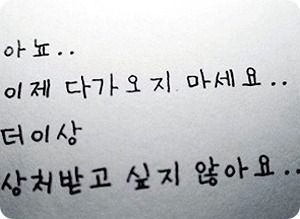 아뇨..
이제 다가오지 마세요..
더이상
상처받고 싶지 않아요..